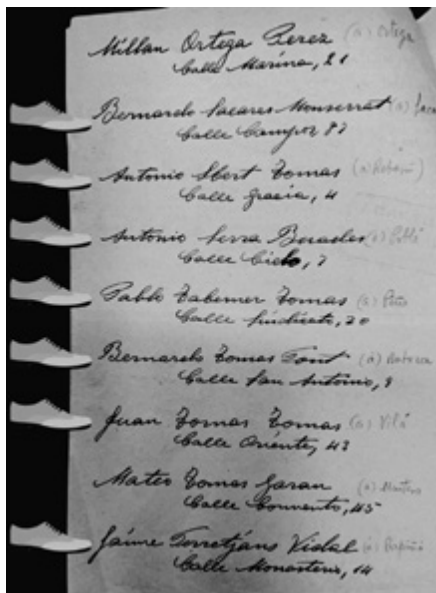 Millan Ortega Perez (a) Ortega
Calle Marina, 21
Bernardo Sacares Monserrat (a)
Calle Campos 87
Antonio Sbert Tomas (a)
Calle Gracia, 4
Antonio Serra (a)
Calle Cielo, 7
Pablo Taberner Tomas (a)
Calle Sindicato, 20
Bernardo Tomas Font (a)
Calle San Antonio, 9
Juan Tomas Tomas (a) Vilá
Calle Oriente, 43
Mateo Tomas Garau (a)
Calle Convento, 45
Jaime Torretjans Vidal (a)
Calle Monasterio, 14